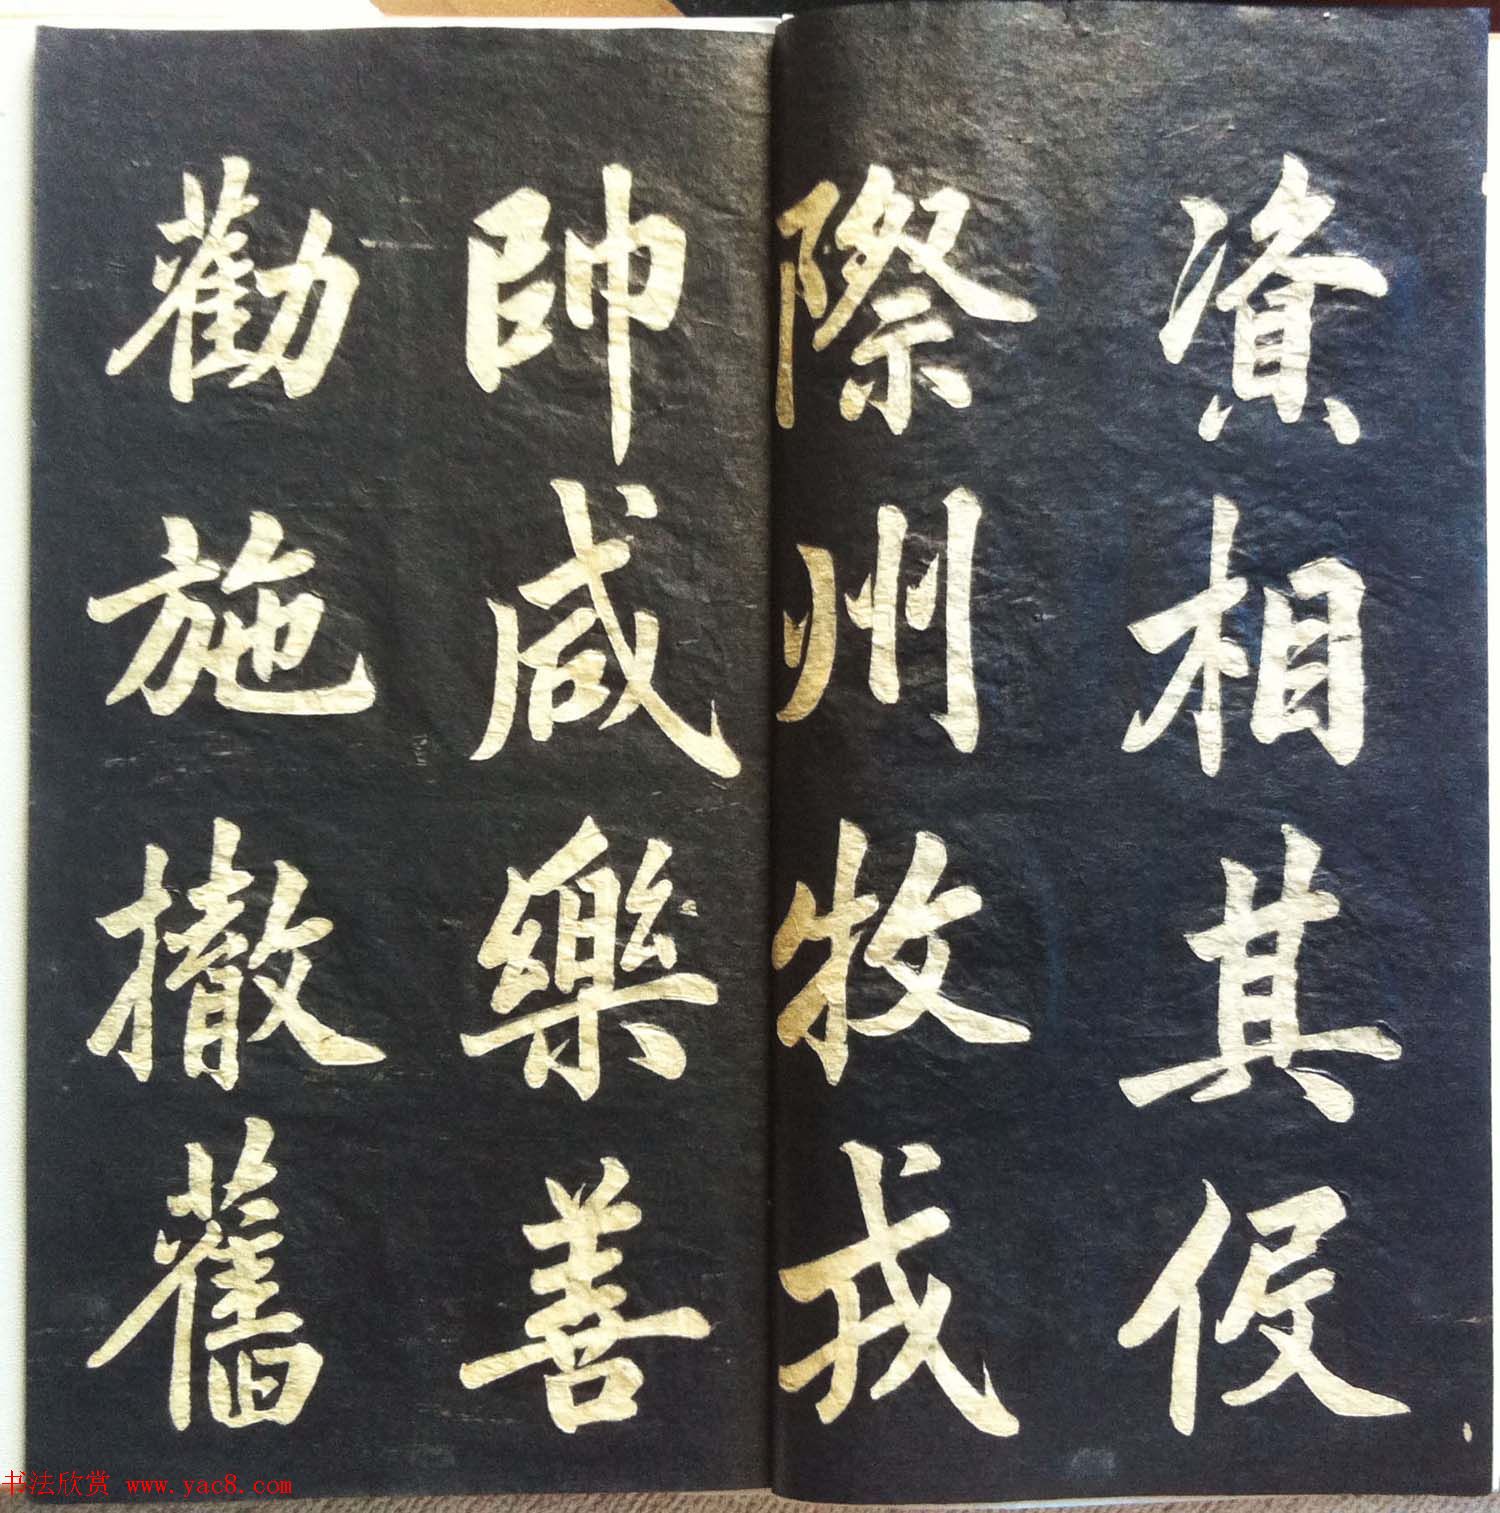 資相其役
際州牧戎
帥咸樂善
勸施撤舊
书法欣赏 www.yac8.com